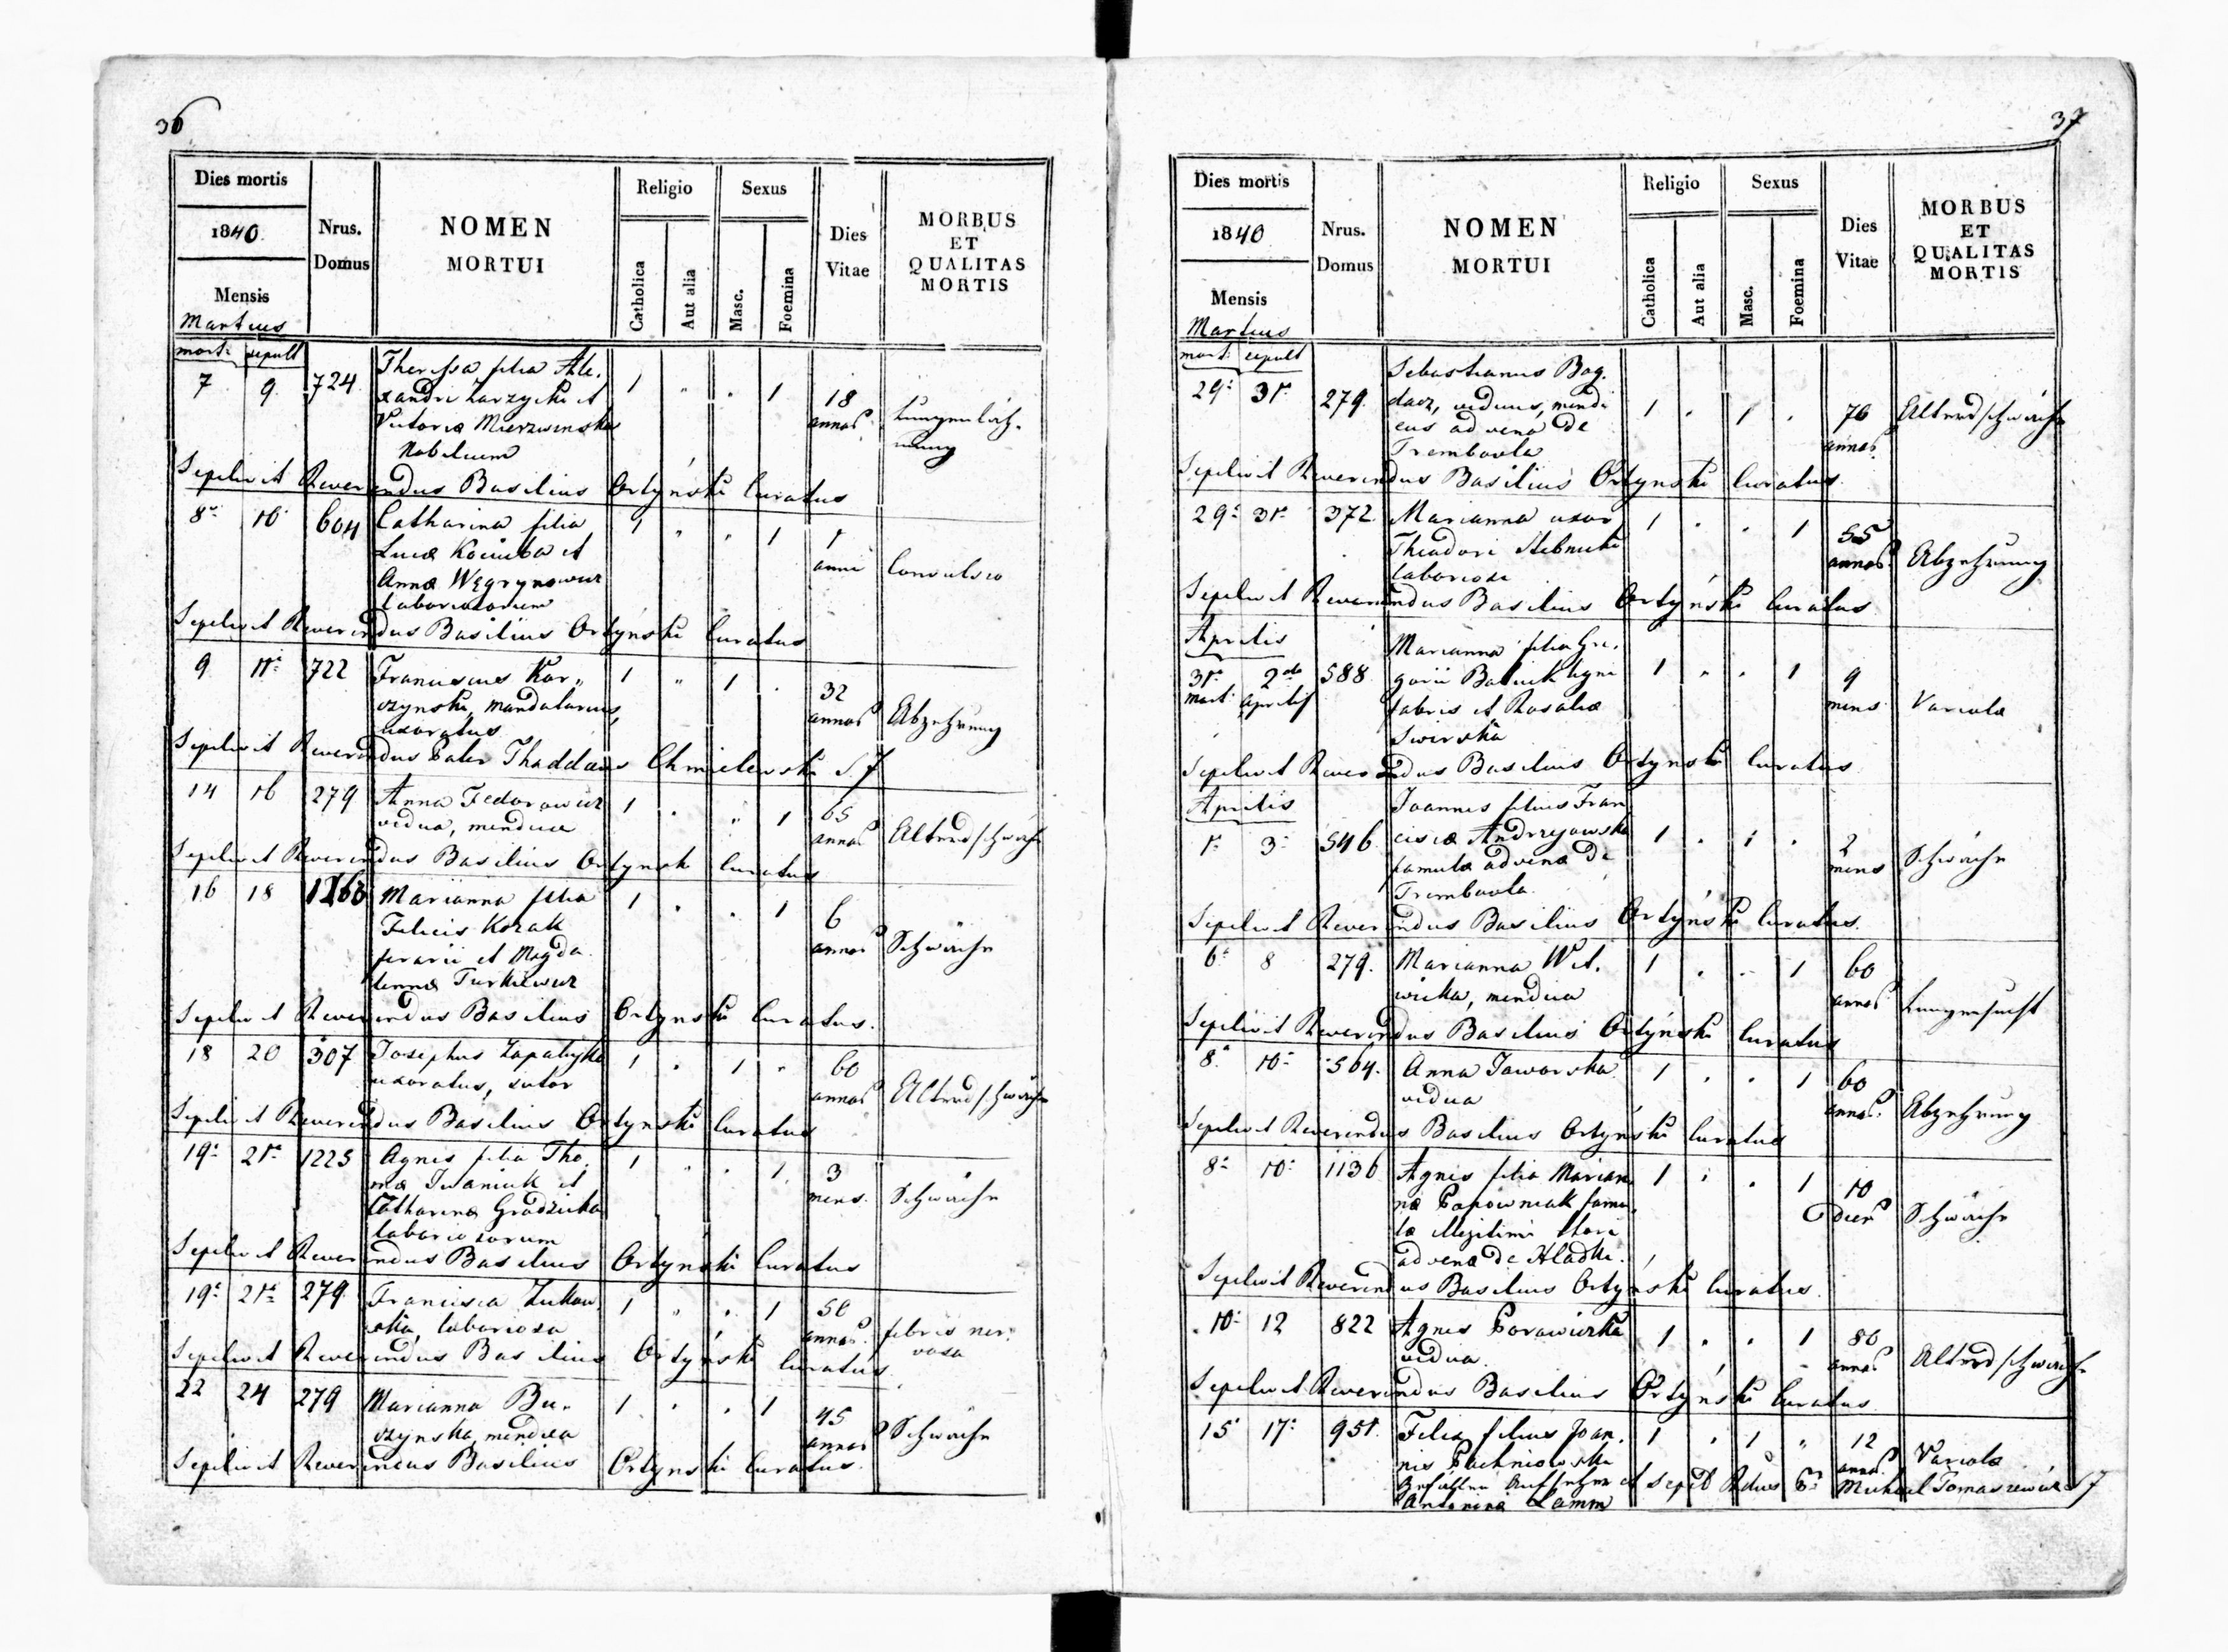 36
Dies mortis
1840.
Mensis
Martius
Nrus.
Domus
NOMEN
MORTUI
Religio
Catholica
Aut alia
Sexus
Masc.
Foemina
Dies
Vitae
MORBUS
ET
QUALITAS
MORTIS
mort: sepult
7 9. 724. Theressa filia Ale-
xandri Zarzycki et
Victoriæ Mierzwinska
Nobilium
1 " . 1 18
annos. Lungenläh-
mung
Sepelivit Reverendus Basilius Ortynski Curatus
8va 10. 604 Catharina filia
Lucæ Kociuba et
Annæ Węgrynowicz
laboriosorum
1 " . 1 1
anni Convulsio
Sepelivit Reverendus Basilius Ortynski Curatus
9. 11a 722 Franciscus Kor-
czynski, mandatarius,
uxoratus
1 " 1 . 32
annos Abzehrung
Sepelivit Reverendus Pater Thaddæus Chmielewski S.J
14 16 279 Anna Fedorowicz
vidua, mendica
1 . " 1 65
annos Altersschwäche
Sepelivit Reverendus Basilius Ortynsk Curatus
16 18 1260 Marianna filia
Felicis Kozak
ferarii et Magda-
lennæ Turkiewicz
1 . . 1 6
annos Schwäche
Sepelivit Reverendus Basilius Ortynski Curatus.
18 20 307 Josephus Zapalizka
uxoratus, sutor
1 . 1 " 60
annos Altersschwäche
Sepelivit Reverendus Basilius Ortynski Curatus
19a 21a 1225 Agnes filia Tho-
mæ Iwaniuk et
Catharinæ Grodzicka
laboriosorum
1 " . 1. 3
mens. Schwäche
Sepelivit Reverendus Basilius Ortynski Curatus
19a 21a 279 Francisca Zukow-
ska, laboriosa
1 " . 1 50
annos. febris ner-
vosa
Sepelivit Reverendus Basilius Ortynski Curatus
22 24 279 Marianna Bu-
czynska, mendica
1 . . 1 45
annos Schwäche
Sepelivit Reverendus Basilius Ortynski Curatus.
37
Dies mortis
1840
Mensis
Martius
Nrus.
Domus
NOMEN
MORTUI
Religio
Catholica
Aut alia
Sexus
Masc.
Foemina
Dies
Vitae
MORBUS
ET
QUALITAS
MORTIS
mort: sepult
29a 31a 279. Sebastianus Bog-
dacz, viduus, mendi-
cus advena de
Trembovla
1 . 1 . 70
annos Altersschwäche
Sepelivit Reverendus Basilius Ortynski Curatus.
29a 31a 372. Marianna uxor
Theodori Stebnicki
laboriosi
1 . . 1 55
annos. Abzehrung
Sepelivit Reverendus Basilius Ortynski Curatus
Aprilis
31a 2da 588 Marianna filia Gre-
gorii Baluik ligni
fabris et Rosaliæ
Swirska
mart. Aprilis
1 " . 1 9
mens Variola
Sepelivit Reverendus Basilius Ortynski Curatus
Aprilis
1a 3a 546. Joannes filius Fran-
ciscæ Andrzejowska
famulæ advenæ de
Trembovla.
1 . 1 . 2
mens Schwäche
Sepelivit Reverendus Basilius Ortynski Curatus.
6a 8 279. Marianna Wit-
wicka, mendica
1 . .. 1 60
annos Lungensucht
Sepelivit Reverendus Basilius Ortynski Curatus
8a 10a 504. Anna Jaworska
vidua
1 . . 1 60
annos. Abzehrung
Sepelivit Reverendus Basilius Ortynski Curatus
8a 10a 1136 Agnes filia Marian-
næ Popowniak famu-
læ illegitimi thori
advenæ de Hladki.
1 . . 1 10
dies Schwäche
Sepelivit Reverendus Basilius Ortynski Curatus.
10a 12 822 Agnes Borowiczka
vidua.
1 . . 1 80
annos Altersschwäche
Sepelivit Reverendus Basilius Ortynski Curatus.
15 17a 951. Felix filius Joan-
nis Pachniowski
Gefällen Aufseher et
Antonina Lamm
1 . 1 " 12
annos. Variola
Sepelt Rdus Pr Michael Tomaszewicz SJ